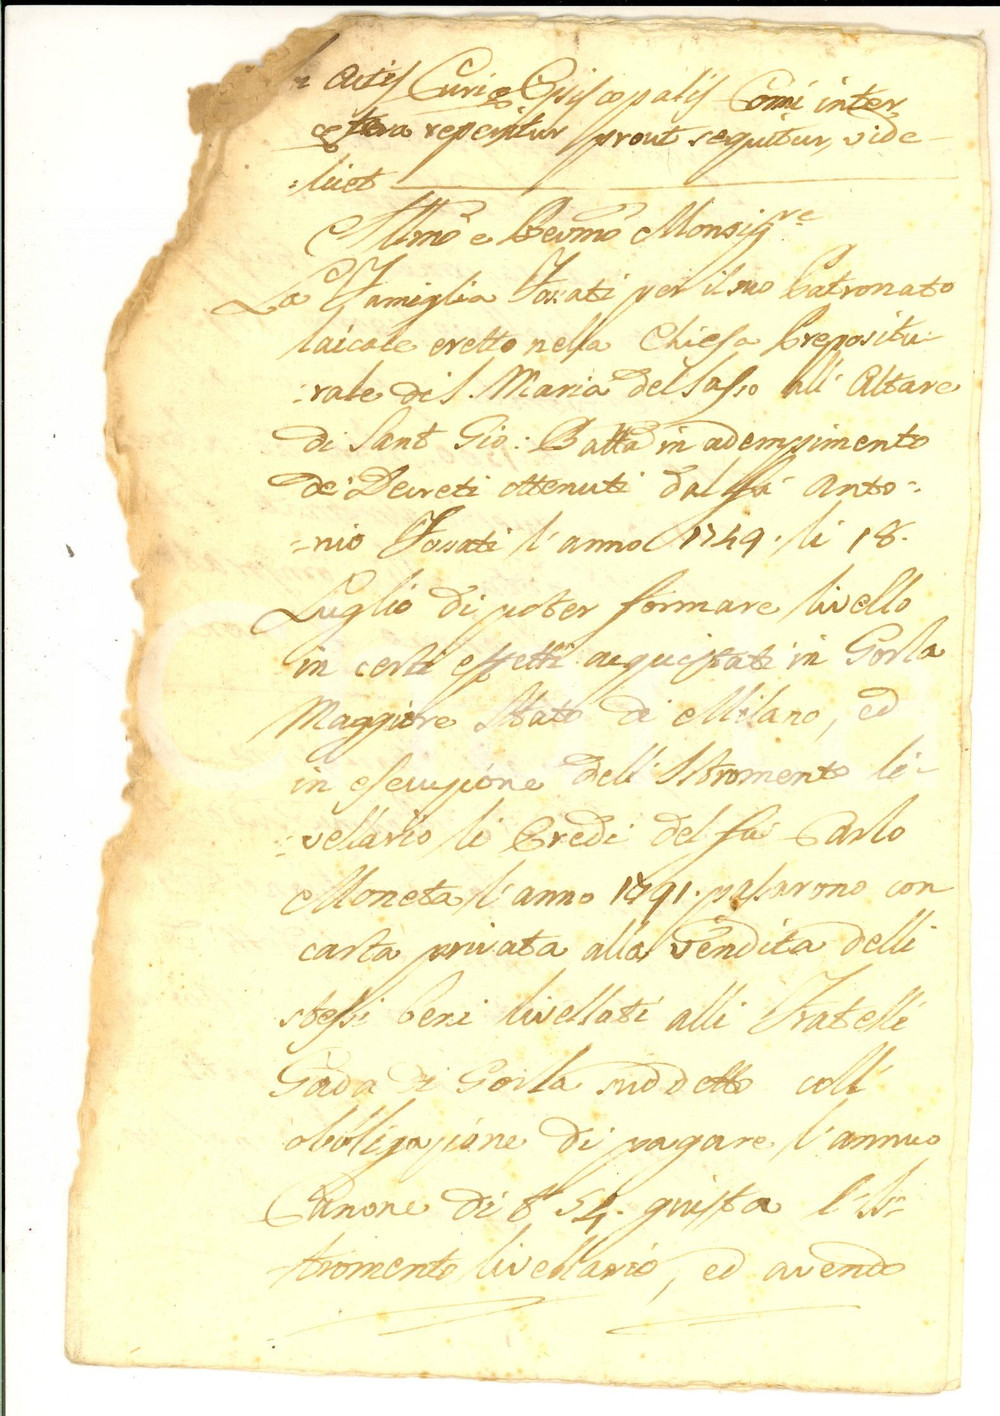 Actis Curiæ Episcopalis Comi inter
cætera reperitur prout sequitur, vide-
=licet
Illmo e Revmo Monsigre
La Famiglia Fosati per il suo Patronato
laicale eretto nella Chiesa Prepositu-
=rale di S. Maria del Sasso all' Altare
di Sant Gio: Batta in adempimento
de' Decreti ottenuti dal fù Anto=
=nio Fosati l'anno 1749. li 18.
Luglio di poter formare livello
in certi effetti acquistati in Gorla
Maggiore Stato di Milano, ed
in esecuzione dell' Istromento li=
=vellario li Eredi del fù Carlo
Moneta l'anno 1791. pasarono con
carta privata alla vendita delli
stessi beni livellati alli Fratelli
Gada di Gorla suddetto coll'
obbligazione di pagare l'annuo
Canone di £ 54. giusta l'Is=
tromento livellario, ed avendo